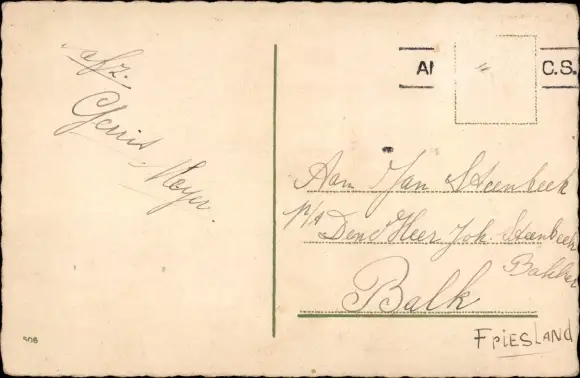 afz.
Gerrit
Meyer.
A
C.S.
Aan Jan Steenbeek
p/A Den Heer Joh. Steenbeek
Bakker
Balk
FRiESLAND
506